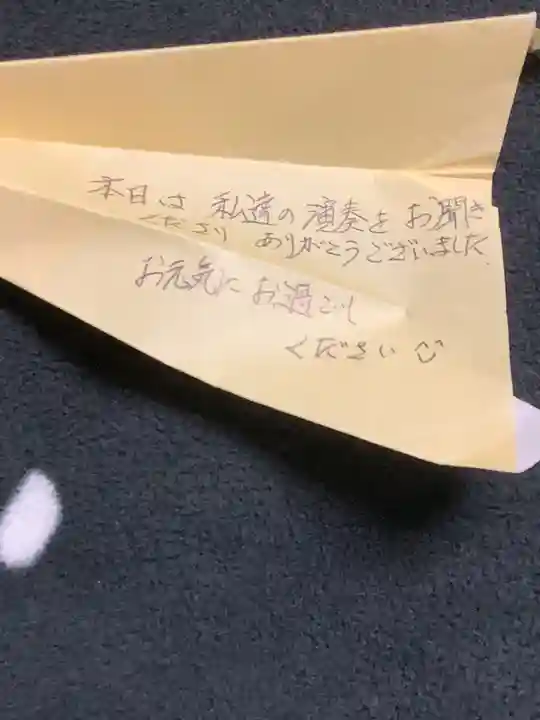 本日は 私達の演奏を お聞き
くださり ありがとうございました
お元気に お過ごし
ください